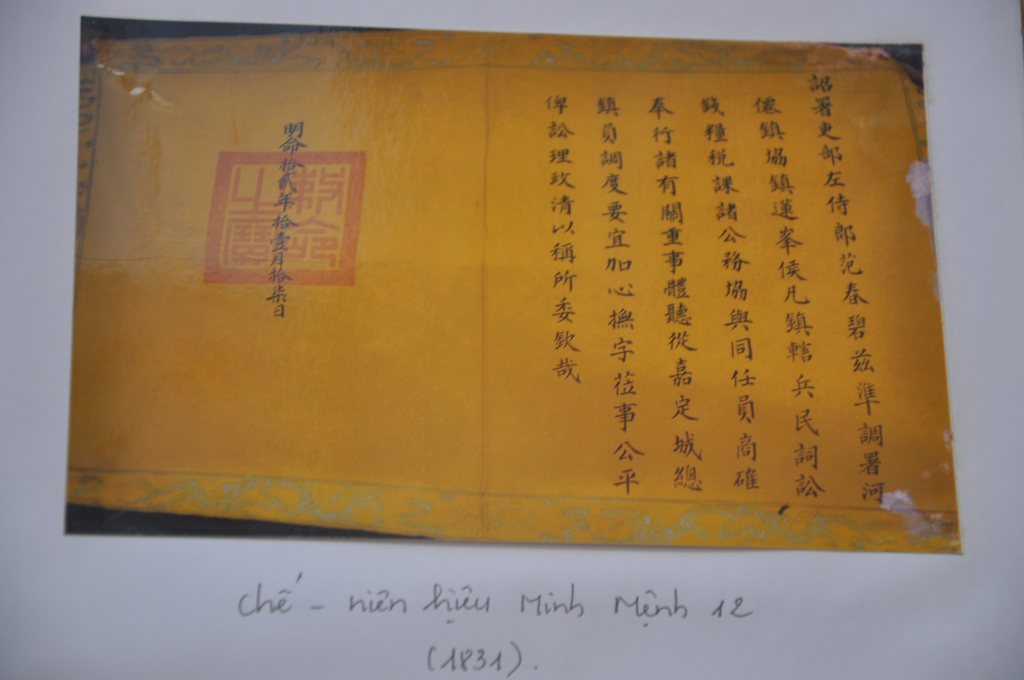 詔署吏部左侍郎范春碧茲準調署河
僊鎮協鎮蓮峯侯凡鎮轄兵民詞訟
錢糧税課諸公務協與同任員商確
奉行諸有關重事體聽從嘉定城總
鎮員調度要宜加心撫字莅事公平
俾訟理政清以稱所委欽哉
明命拾貳年拾壹月拾柒日
敕命之寶
Chế - niên hiệu Minh Mệnh 12
(1831).